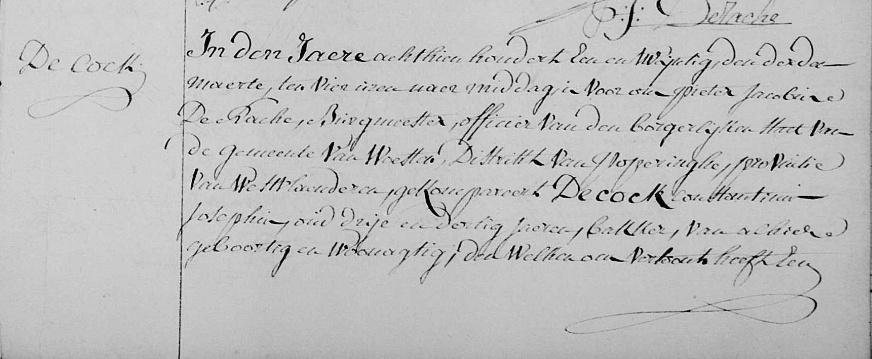 P: J: DeRache
De Cock
In den Jaere achthien hondert Een en Twyntig, den derden
maerte, ten vier uren naer middag, voor ons pieter Jacobus
De Rache, Burgmeester, officier van den borgerlijken staet van
de gemeente van Westen, Distrikt van Poperinghe, provintie
van Westvlaenderen, gekompareert Decock Constantinus
Josephus, oud drije en dertig Jaeren, bakker, van alhier
geboortig en Woonagtig, den Welken ons Vertoont heeft Een